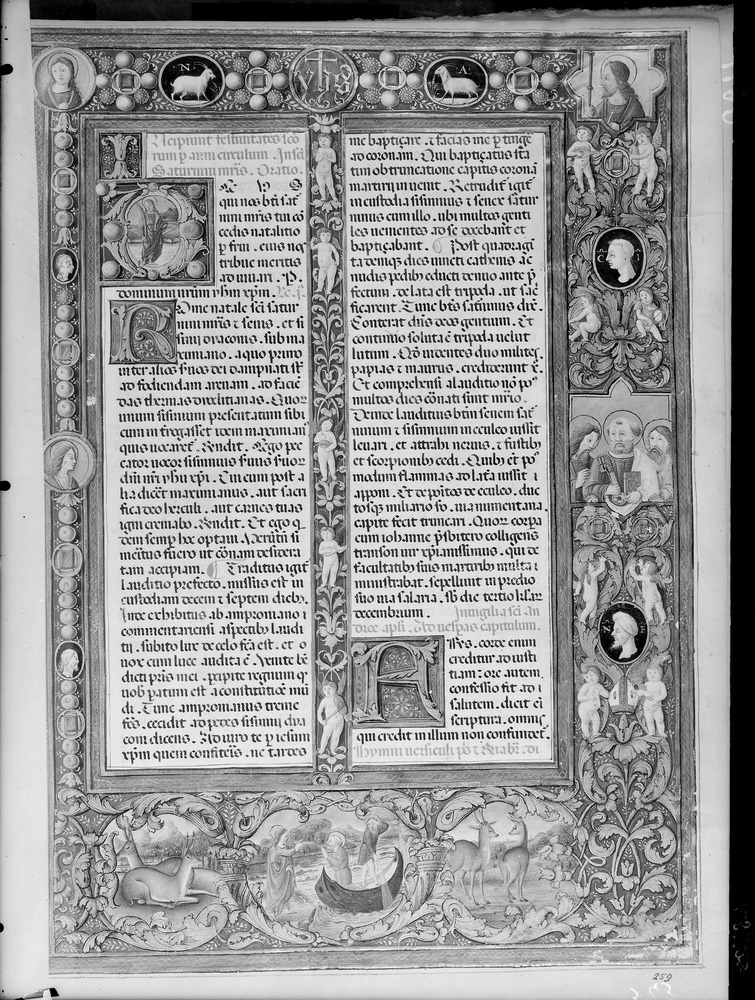 N
yhs
A
Incipiunt festiuitates sco
rum p anni circulum. In sci
Saturnini mris. Oratio.
DEVS
qui nos bti sat
nini mris tui cō
cedis natalitio
p frui. eius nos
tribue meritis
adiuuari. P.
dominum nrm yhm xpm.
Rome natale sci satur
nini mris & senis. et si
sinij diaconis. sub ma
ximiano. a quo primo
inter alios
ad fodiendam arenam. ad facie
das thermas dioclitianas. Quor
unum sisinium presentatum sibi
cum interrogasset idem maximian
quis uocaret. Rendit. Ego pec
cator uocor sisinnius suus suor
dni nri yhu xpi. Cui cum post a
lia dicēt maximianus. aut sacri
fica deo herculi. aut carnes tuas
igni cremabo. Rendit. Et ego q
dem semp hoc optaui. Verūtn si
meritus fuero ut coronam desidera
tam accipiam. Traditus igit
laudicio prefecto. missus est in
custodiam decem & septem dieb.
Inde exhibitus ab amproniano i
commentariensi aspectib laudi
tij. subito lux de celo fca est. et
uox cum luce audita ē. Venite bē
dicti pris mei. pcipite regnum q
uob paratum est a constitutiōe mū
di. Tunc ampronianus treme
fcs. cecidit ad pedes sisinnij dia
coni dicens. Adiuro te p iesum
xpm quem confiteris. ne tardes
me baptiçare. & facias me ptinge
ad coronam. Qui baptiçatus sta
tim obtruncatione capitis coronā
martirij inuenit. Retrudit igit
in custodia sisinnius & senex satur
ninus cum illo. ubi multos genti
les uenientes ad se docebant et
baptiçabant. Post quadragī
ta denique dies uincti cathenis ac
nudis pedib educti denuo ante p
fectum. delata est tripoda. ut sac
ficarent. Tunc bts saturninus dix.
Conterat dns deos gentium. Et
continuo soluta ē tripoda uelut
lutum. Qd uidentes duo milites.
papias & maurus. crediderunt
Et comprehensi a laudicio nō po
multos dies coronati sunt mrio.
Deinde laudicius bm senem sat
ninum & sisinnium in eculeo iussit
leuari. et attrahi neruis. & fustib
et scorpionib cedi. Quib et po
modum flammas ad latā iussit i
apponi. Et depositos de eculeo. duc
tosq miliario
capite fecit truncari. Quor corpa
cum iohanne psbitero colligens
transon uir xpianissimus. qui de
facultatib suis martirib multa i
ministrabat. sepelliuit in predio
suo uia salaria. sb die tertio klar
decembrium. In uigilia sci an
dree apli. Ad uespas capitulum.
FRs. corde enim
creditur ad iusti
tiam: ore autem.
confessio fit ad i
salutem. dicit eī
scriptura. omnis
qui credit in illum non confundet.
Hymni uersiculi
C I
A N
259